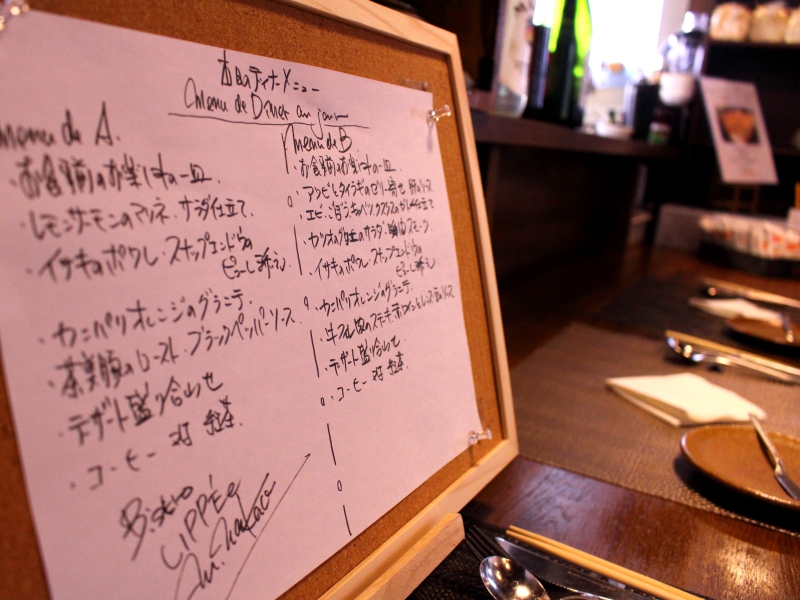 本日のディナーメニュー
Menu de Diner au jour
Menu de A.
・お食事前のお楽しみの一皿.
・レモンサーモンのマリネ.サラダ仕立て.
・イサキのポワレ・スナップエンドウの
ピューレ添え.
・カンパリオレンジのグラニテ.
・茶美豚のロースト・ブラックペッパーソース.
・デザート盛り合わせ
・コーヒー 又は 紅茶.
Menu de B
・お食事前のお楽しみの一皿.
・カツオの サラダ・ スモーク.
・イサキのポワレ・スナップエンドウの
ピューレ添え.
・カンパリオレンジのグラニテ.
・牛フィレ肉のステーキ・赤ワイン ソース
・デザート盛り合わせ
・コーヒー 又は 紅茶.
Bistro
LIPPÉE